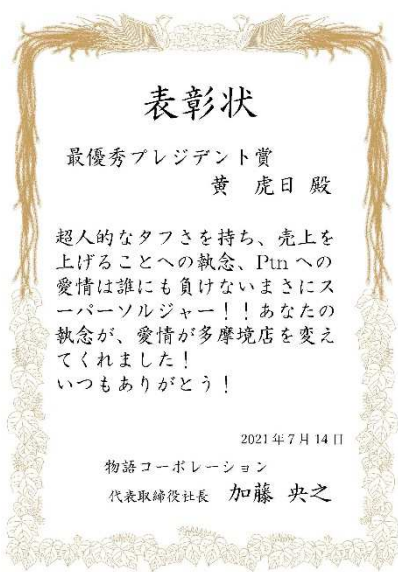 表彰状
最優秀プレジデント賞
黄 虎日 殿
超人的なタフさを持ち、売上を
上げることへの執念、Ptnへの
愛情は誰にも負けないまさにス
ーパーソルジャー!!あなたの
執念が、愛情が多摩境店を変え
てくれました!
いつもありがとう!
2021年7月14日
物語コーポレーション
代表取締役社長 加藤 央之